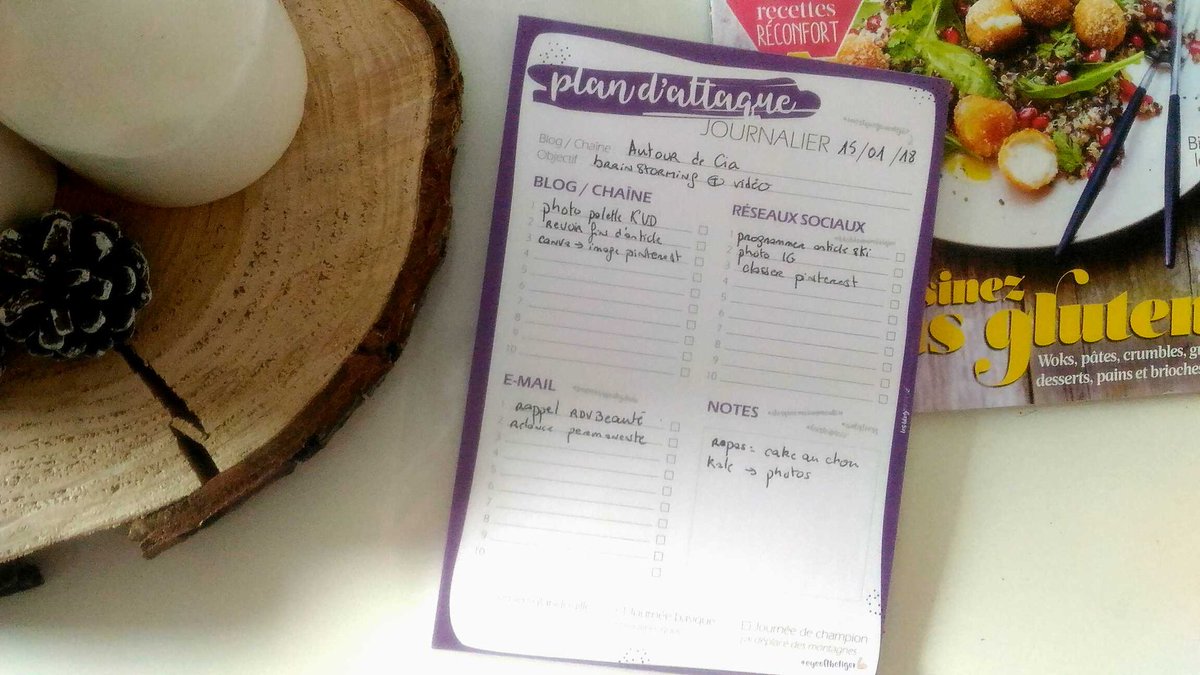 recettes
RÉCONFORT
plan d'attaque
JOURNALIER 15/01/18
Blog / Chaîne Autour de Cia
Objectif brainstorming + vidéo
BLOG / CHAÎNE
1 photo palette KVD
2 Revoir fin d'article
3 canva → image pinterest
4
5
6
7
8
9
10
RÉSEAUX SOCIAUX
1 programmer article ski
2 photo IG
3 classer pinterest
4
5
6
7
8
9
10
E-MAIL
Rappel RDV Beauté
relance permanente
3
4
5
6
7
8
9
10
NOTES
Repas : cake au chou
Kale → photos
Journée basique
Journée de champion
j'ai déplacé des montagnes
#eyeofthetiger
sinez
s gluten
Woks, pâtes, crumbles,
desserts, pains et brioches